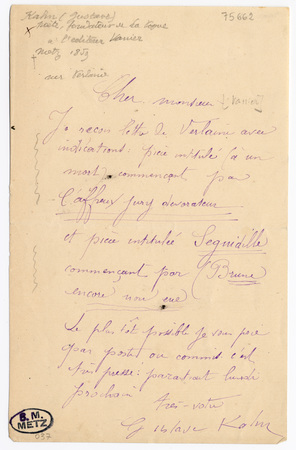 Kahn (Gustave)
75662
poète, fondateur de la Vogue
à l'éditeur Vanier
Metz 1859
sur Verlaine
Cher monsieur [Vanier]
Je reçois lettre de Verlaine avec
indications : pièce intitulée (à un
mort commençant par
L'affreux jury dévorateur
et pièce intitulée Seguidille
commençant par (Brune
encore non eue)
Le plus tôt possible je vous prie
par poste ou commis c'est
très pressé : paraissant lundi
prochain
Très-votre
Gustave Kahn
B. M.
METZ